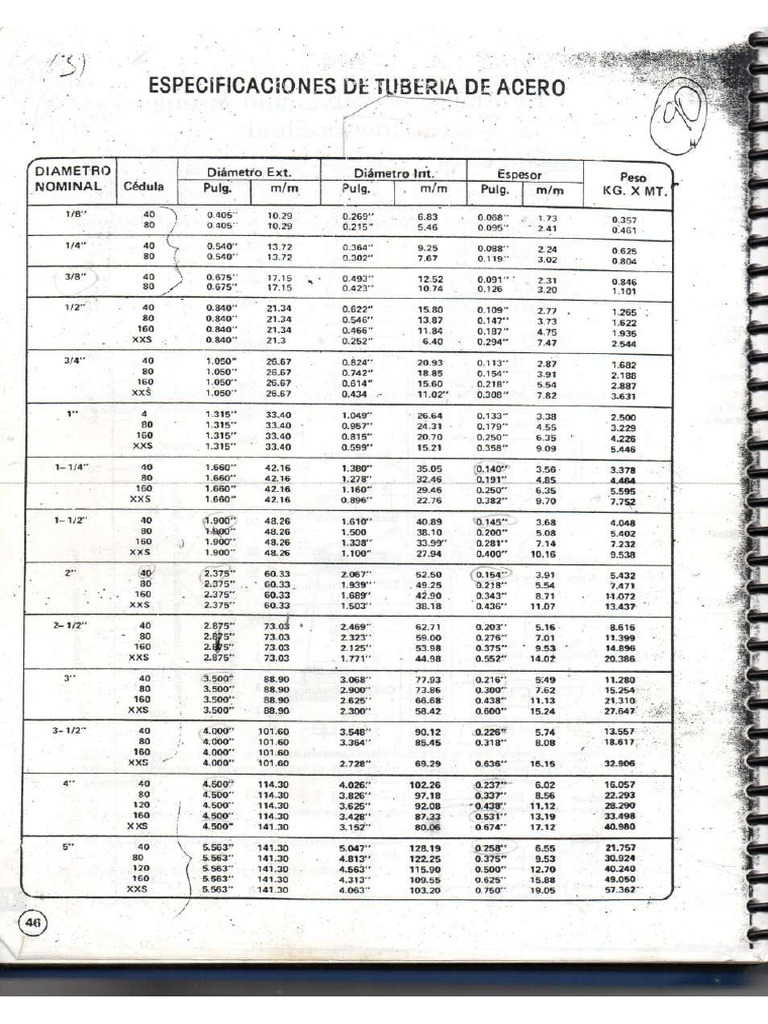 (3)
ESPECIFICACIONES DE TUBERIA DE ACERO
90
DIAMETRO NOMINAL Cédula Diámetro Ext. Diámetro Int. Espesor Peso
Pulg. m/m Pulg. m/m Pulg. m/m KG. X MT.
1/8" 40 0.405" 10.29 0.269" 6.83 0.068" 1.73 0.357
80 0.405" 10.29 0.215" 5.46 0.095" 2.41 0.461
1/4" 40 0.540" 13.72 0.364" 9.25 0.088" 2.24 0.625
80 0.540" 13.72 0.302" 7.67 0.119" 3.02 0.804
3/8" 40 0.675" 17.15 0.493" 12.52 0.091" 2.31 0.846
80 0.675" 17.15 0.423" 10.74 0.126 3.20 1.101
1/2" 40 0.840" 21.34 0.622" 15.80 0.109" 2.77 1.265
80 0.840" 21.34 0.546" 13.87 0.147" 3.73 1.622
160 0.840" 21.34 0.466" 11.84 0.187" 4.75 1.935
XXS 0.840" 21.3 0.252" 6.40 0.294" 7.47 2.544
3/4" 40 1.050" 26.67 0.824" 20.93 0.113" 2.87 1.682
80 1.050" 26.67 0.742" 18.85 0.154" 3.91 2.188
160 1.050" 26.67 0.614" 15.60 0.218" 5.54 2.887
XXS 1.050" 26.67 0.434 11.02" 0.308" 7.82 3.631
1" 4 1.315" 33.40 1.049" 26.64 0.133" 3.38 2.500
80 1.315" 33.40 0.957" 24.31 0.179" 4.55 3.229
160 1.315" 33.40 0.815" 20.70 0.250" 6.35 4.226
XXS 1.315" 33.40 0.599" 15.21 0.358" 9.09 5.446
1-1/4" 40 1.660" 42.16 1.380" 35.05 0.140" 3.56 3.378
80 1.660" 42.16 1.278" 32.46 0.191" 4.85 4.464
160 1.660" 42.16 1.160" 29.46 0.250" 6.35 5.595
XXS 1.660" 42.16 0.896" 22.76 0.382" 9.70 7.752
1-1/2" 40 1.900" 48.26 1.610" 40.89 0.145" 3.68 4.048
80 1.900" 48.26 1.500 38.10 0.200" 5.08 5.402
160 1.900" 48.26 1.338" 33.99" 0.281" 7.14 7.232
XXS 1.900" 48.26 1.100" 27.94 0.400" 10.16 9.538
2" 40 2.375" 60.33 2.067" 52.50 0.154" 3.91 5.432
80 2.375" 60.33 1.939" 49.25 0.218" 5.54 7.471
160 2.375" 60.33 1.689" 42.90 0.343" 8.71 11.072
XXS 2.375" 60.33 1.503" 38.18 0.436" 11.07 13.437
2-1/2" 40 2.875" 73.03 2.469" 62.71 0.203" 5.16 8.616
80 2.875" 73.03 2.323" 59.00 0.276" 7.01 11.399
160 2.875" 73.03 2.125" 53.98 0.375" 9.53 14.896
XXS 2.875" 73.03 1.771" 44.98 0.552" 14.02 20.386
3" 40 3.500" 88.90 3.068" 77.93 0.216" 5.49 11.280
80 3.500" 88.90 2.900" 73.86 0.300" 7.62 15.254
160 3.500" 88.90 2.625" 66.68 0.438" 11.13 21.310
XXS 3.500" 88.90 2.300" 58.42 0.600" 15.24 27.647
3-1/2" 40 4.000" 101.60 3.548" 90.12 0.226" 5.74 13.557
80 4.000" 101.60 3.364" 85.45 0.318" 8.08 18.617
160 4.000" 101.60
XXS 4.000" 101.60 2.728" 69.29 0.636" 16.15 32.906
4" 40 4.500" 114.30 4.026" 102.26 0.237" 6.02 16.057
80 4.500" 114.30 3.826" 97.18 0.337" 8.56 22.293
120 4.500" 114.30 3.625" 92.08 0.438" 11.12 28.290
160 4.500" 114.30 3.428" 87.33 0.531" 13.19 33.498
XXS 4.500" 141.30 3.152" 80.06 0.674" 17.12 40.980
5" 40 5.563" 141.30 5.047" 128.19 0.258" 6.55 21.757
80 5.563" 141.30 4.813" 122.25 0.375" 9.53 30.924
120 5.563" 141.30 4.563" 115.90 0.500" 12.70 40.240
160 5.563" 141.30 4.313" 109.55 0.625" 15.88 49.050
XXS 5.563" 141.30 4.063" 103.20 0.750" 19.05 57.362
46